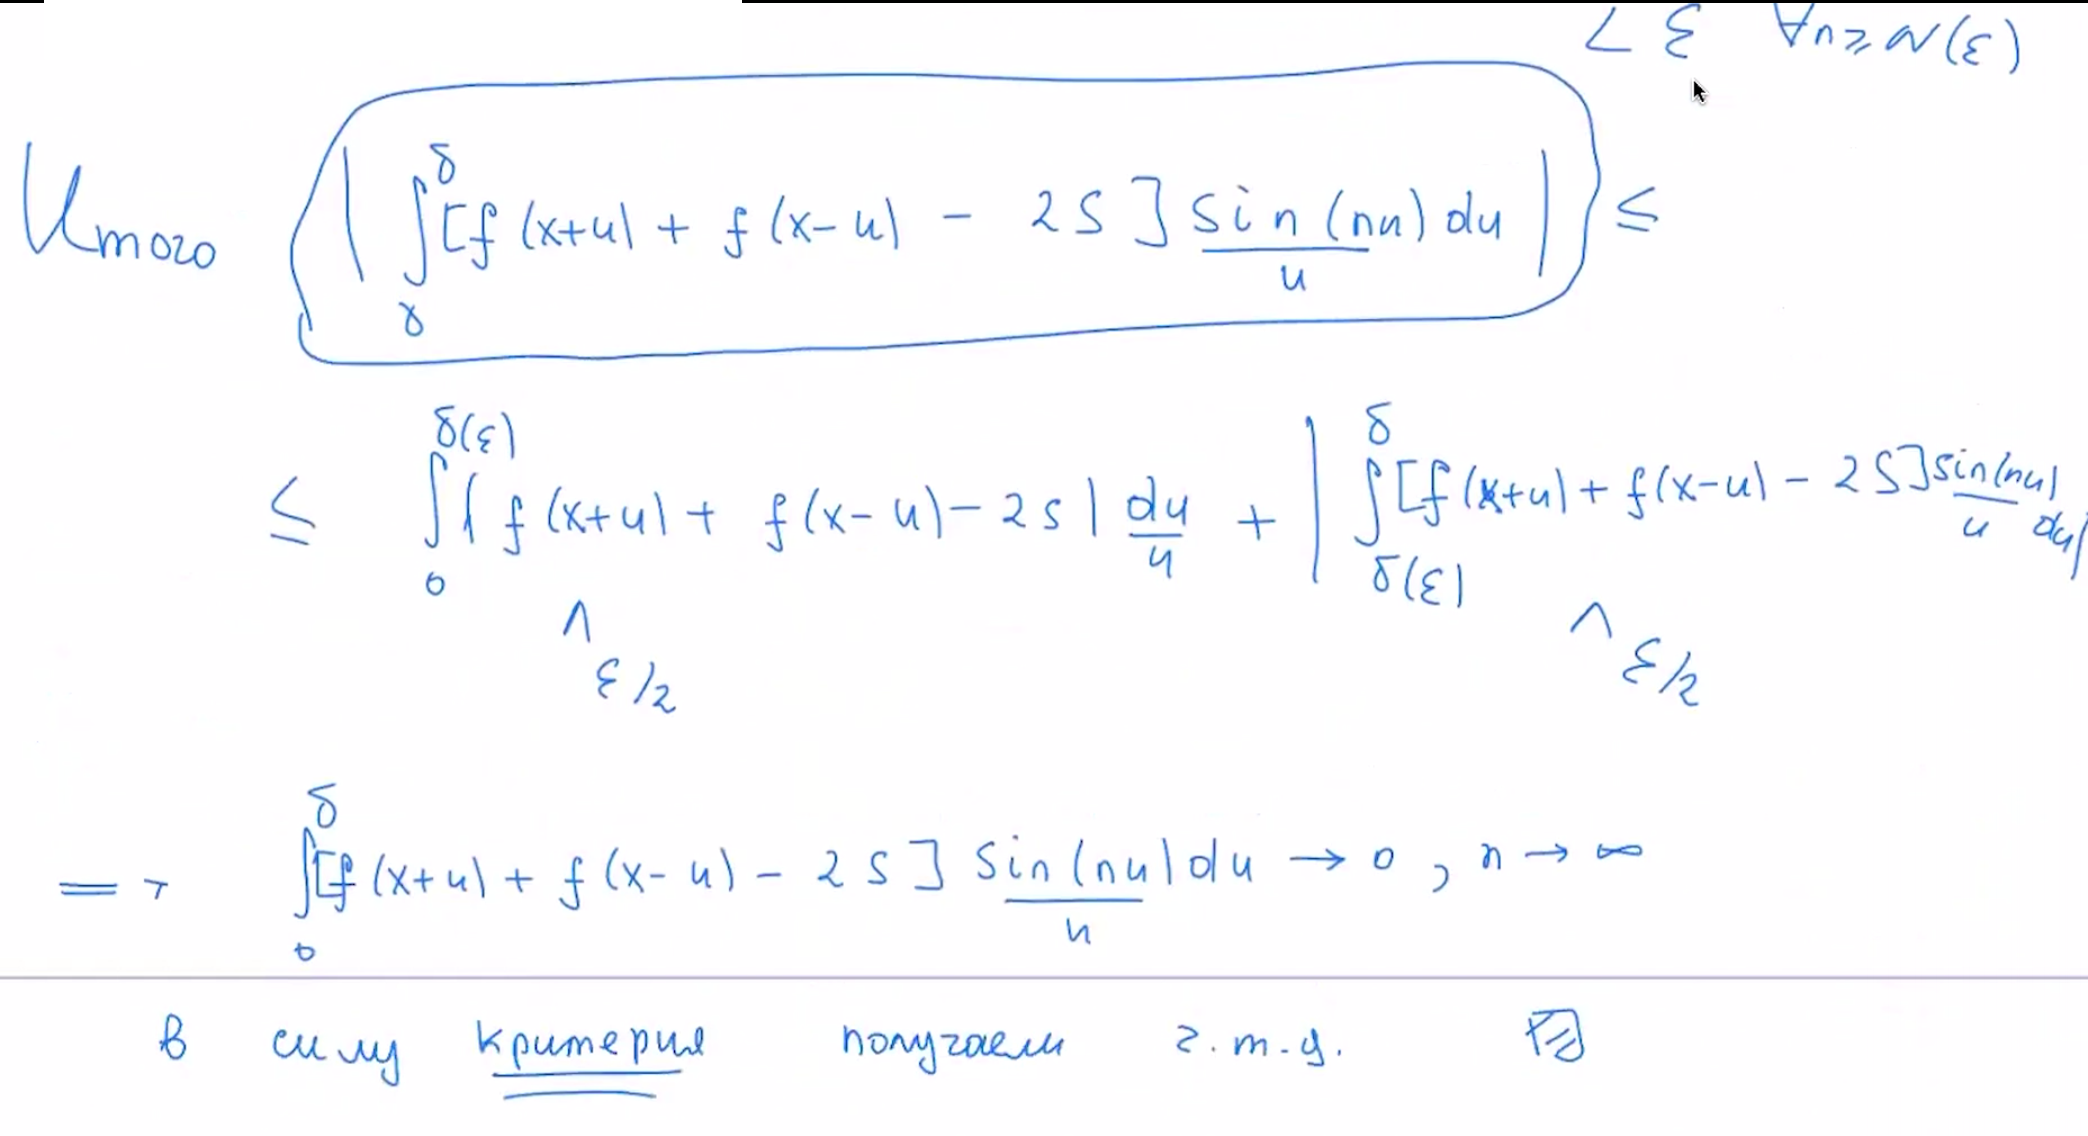 < ε ∀n ≥ N(ε)
Итого | ∫_γ^δ [f(x+u) + f(x-u) - 2S] sin(nu)/u du | ≤
≤ ∫_0^{δ(ε)} | f(x+u) + f(x-u) - 2S | du/u + | ∫_{δ(ε)}^δ [f(x+u) + f(x-u) - 2S] sin(nu)/u du |
∧ ∧
ε/2 ε/2
=> ∫_0^δ [f(x+u) + f(x-u) - 2S] sin(nu)/u du → 0, n → ∞
В силу критерия получаем ч.т.д.